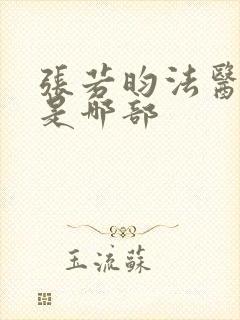 張若昀法醫
是哪部
玉流蘇